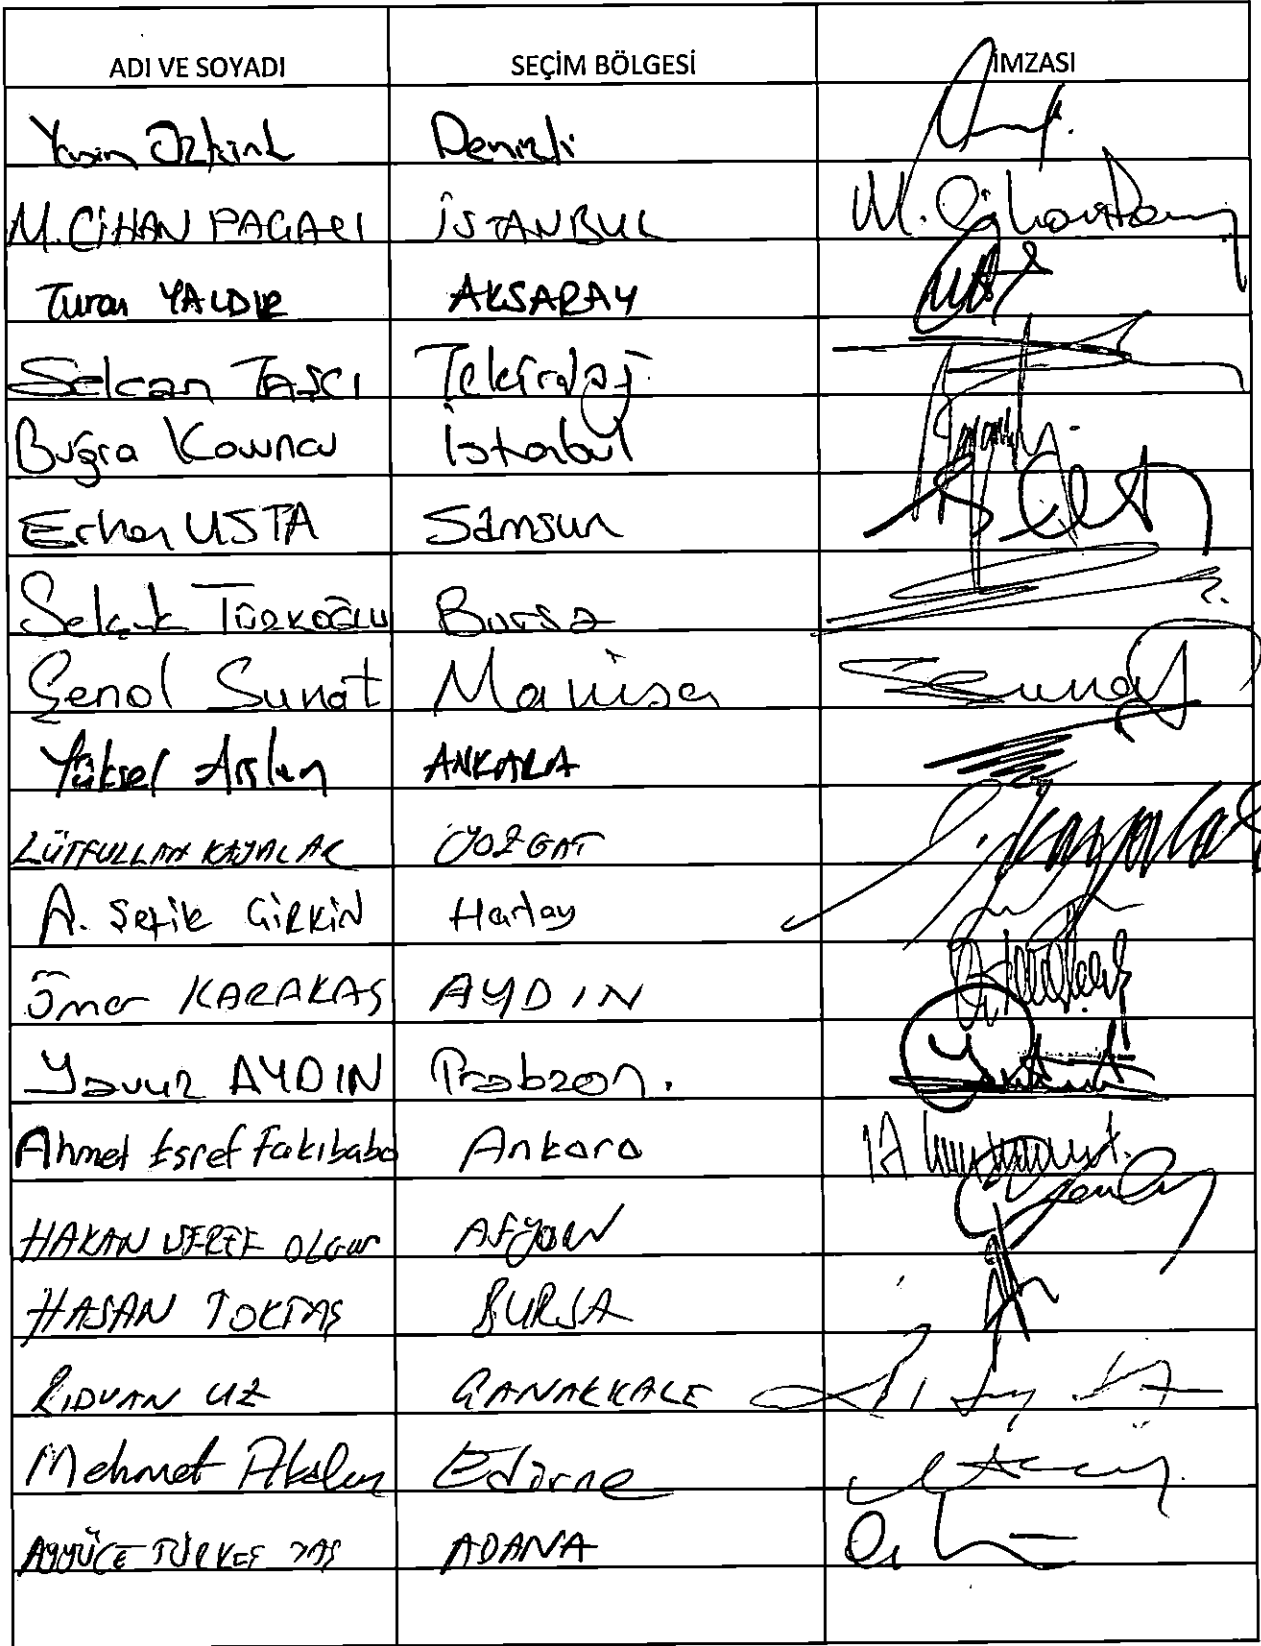 ADI VE SOYADI SEÇİM BÖLGESİ İMZASI
Yasin Öztürk Denizli
M. CİHAN PAÇACI İSTANBUL
Turan YALDIR AKSARAY
Selcan TAŞCI Tekirdağ
Buğra Kavuncu İstanbul
Erhan USTA Samsun
Selçuk TÜRKOĞLU Bursa
Şenol Sunat Manisa Sunat
Yüksel Arslan ANKARA
LÜTFULLAH KAYALAR YOZGAT
A. Şefik GİRKİN Hatay
Ömer KARAKAŞ AYDIN
Yavuz AYDIN Trabzon.
Ahmet Eşref Fakıbaba Ankara
HAKAN ŞEREF OLGUN AFYON
HASAN TOKTAŞ BURSA
RIDVAN UZ ÇANAKKALE
Mehmet Akalın Edirne
AYYÜCE TÜRKEŞ TAŞ ADANA